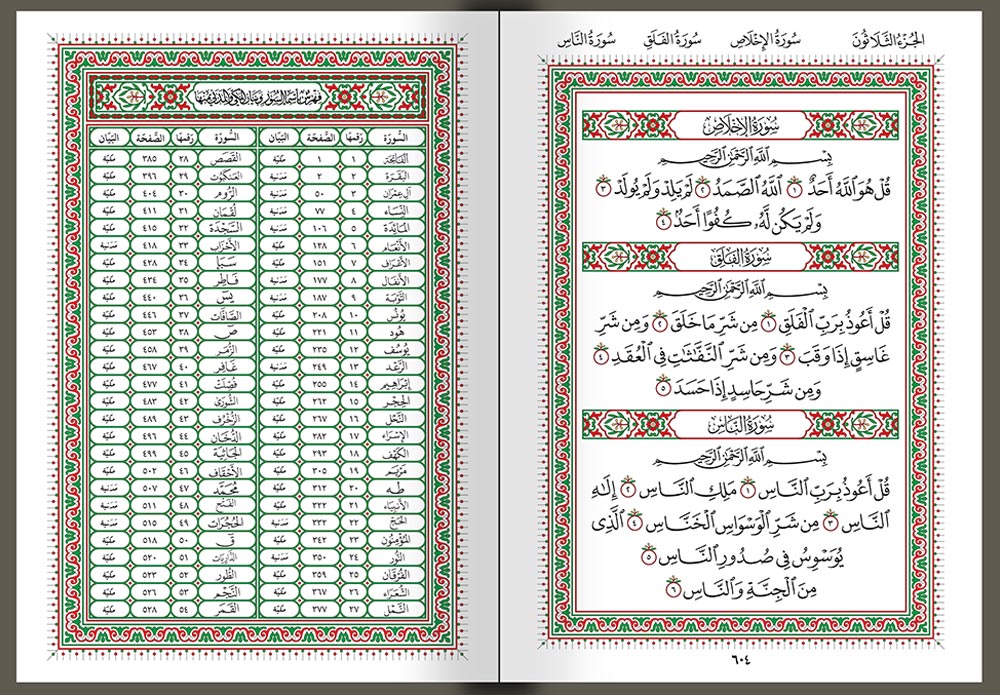 الجُزءُ الثَّلَاثُونَ سُورَةُ الإِخْلَاصِ سُورَةُ الفَلَقِ سُورَةُ النَّاسِ
سُورَةُ الإِخْلَاصِ
بِسْمِ اللَّهِ الرَّحْمَٰنِ الرَّحِيمِ
قُلْ هُوَ ٱللَّهُ أَحَدٌ ١ ٱللَّهُ ٱلصَّمَدُ ٢ لَمْ يَلِدْ وَلَمْ يُولَدْ ٣
وَلَمْ يَكُن لَّهُۥ كُفُوًا أَحَدٌۢ ٤
سُورَةُ الفَلَقِ
بِسْمِ اللَّهِ الرَّحْمَٰنِ الرَّحِيمِ
قُلْ أَعُوذُ بِرَبِّ ٱلْفَلَقِ ١ مِن شَرِّ مَا خَلَقَ ٢ وَمِن شَرِّ
غَاسِقٍ إِذَا وَقَبَ ٣ وَمِن شَرِّ ٱلنَّفَّٰثَٰتِ فِى ٱلْعُقَدِ ٤
وَمِن شَرِّ حَاسِدٍ إِذَا حَسَدَ ٥
سُورَةُ النَّاسِ
بِسْمِ اللَّهِ الرَّحْمَٰنِ الرَّحِيمِ
قُلْ أَعُوذُ بِرَبِّ ٱلنَّاسِ ١ مَلِكِ ٱلنَّاسِ ٢ إِلَٰهِ
ٱلنَّاسِ ٣ مِن شَرِّ ٱلْوَسْوَاسِ ٱلْخَنَّاسِ ٤ ٱلَّذِى
يُوَسْوِسُ فِى صُدُورِ ٱلنَّاسِ ٥
مِنَ ٱلْجِنَّةِ وَٱلنَّاسِ ٦
٦٠٤
فهرس بأسماء السور وبيان المكي والمدني منها
السورة رقمها الصفحة البيان السورة رقمها الصفحة البيان
الفاتحة ١ ١ مكية القصص ٢٨ ٣٨٥ مكية
البقرة ٢ ٢ مدنية العنكبوت ٢٩ ٣٩٦ مكية
آل عمران ٣ ٥٠ مدنية الروم ٣٠ ٤٠٤ مكية
النساء ٤ ٧٧ مدنية لقمان ٣١ ٤١١ مكية
المائدة ٥ ١٠٦ مدنية السجدة ٣٢ ٤١٥ مكية
الأنعام ٦ ١٢٨ مكية الأحزاب ٣٣ ٤١٨ مدنية
الأعراف ٧ ١٥١ مكية سبأ ٣٤ ٤٢٨ مكية
الأنفال ٨ ١٧٧ مدنية فاطر ٣٥ ٤٣٤ مكية
التوبة ٩ ١٨٧ مدنية يس ٣٦ ٤٤٠ مكية
يونس ١٠ ٢٠٨ مكية الصافات ٣٧ ٤٤٦ مكية
هود ١١ ٢٢١ مكية ص ٣٨ ٤٥٣ مكية
يوسف ١٢ ٢٣٥ مكية الزمر ٣٩ ٤٥٨ مكية
الرعد ١٣ ٢٤٩ مدنية غافر ٤٠ ٤٦٧ مكية
إبراهيم ١٤ ٢٥٥ مكية فصلت ٤١ ٤٧٧ مكية
الحجر ١٥ ٢٦٢ مكية الشورى ٤٢ ٤٨٣ مكية
النحل ١٦ ٢٦٧ مكية الزخرف ٤٣ ٤٨٩ مكية
الإسراء ١٧ ٢٨٢ مكية الدخان ٤٤ ٤٩٦ مكية
الكهف ١٨ ٢٩٣ مكية الجاثية ٤٥ ٤٩٩ مكية
مريم ١٩ ٣٠٥ مكية الأحقاف ٤٦ ٥٠٢ مكية
طه ٢٠ ٣١٢ مكية محمد ٤٧ ٥٠٧ مدنية
الأنبياء ٢١ ٣٢٢ مكية الفتح ٤٨ ٥١١ مدنية
الحج ٢٢ ٣٣٢ مدنية الحجرات ٤٩ ٥١٥ مدنية
المؤمنون ٢٣ ٣٤٢ مكية ق ٥٠ ٥١٨ مكية
النور ٢٤ ٣٥٠ مدنية الذاريات ٥١ ٥٢٠ مكية
الفرقان ٢٥ ٣٥٩ مكية الطور ٥٢ ٥٢٣ مكية
الشعراء ٢٦ ٣٦٧ مكية النجم ٥٣ ٥٢٦ مكية
النمل ٢٧ ٣٧٧ مكية القمر ٥٤ ٥٢٨ مكية